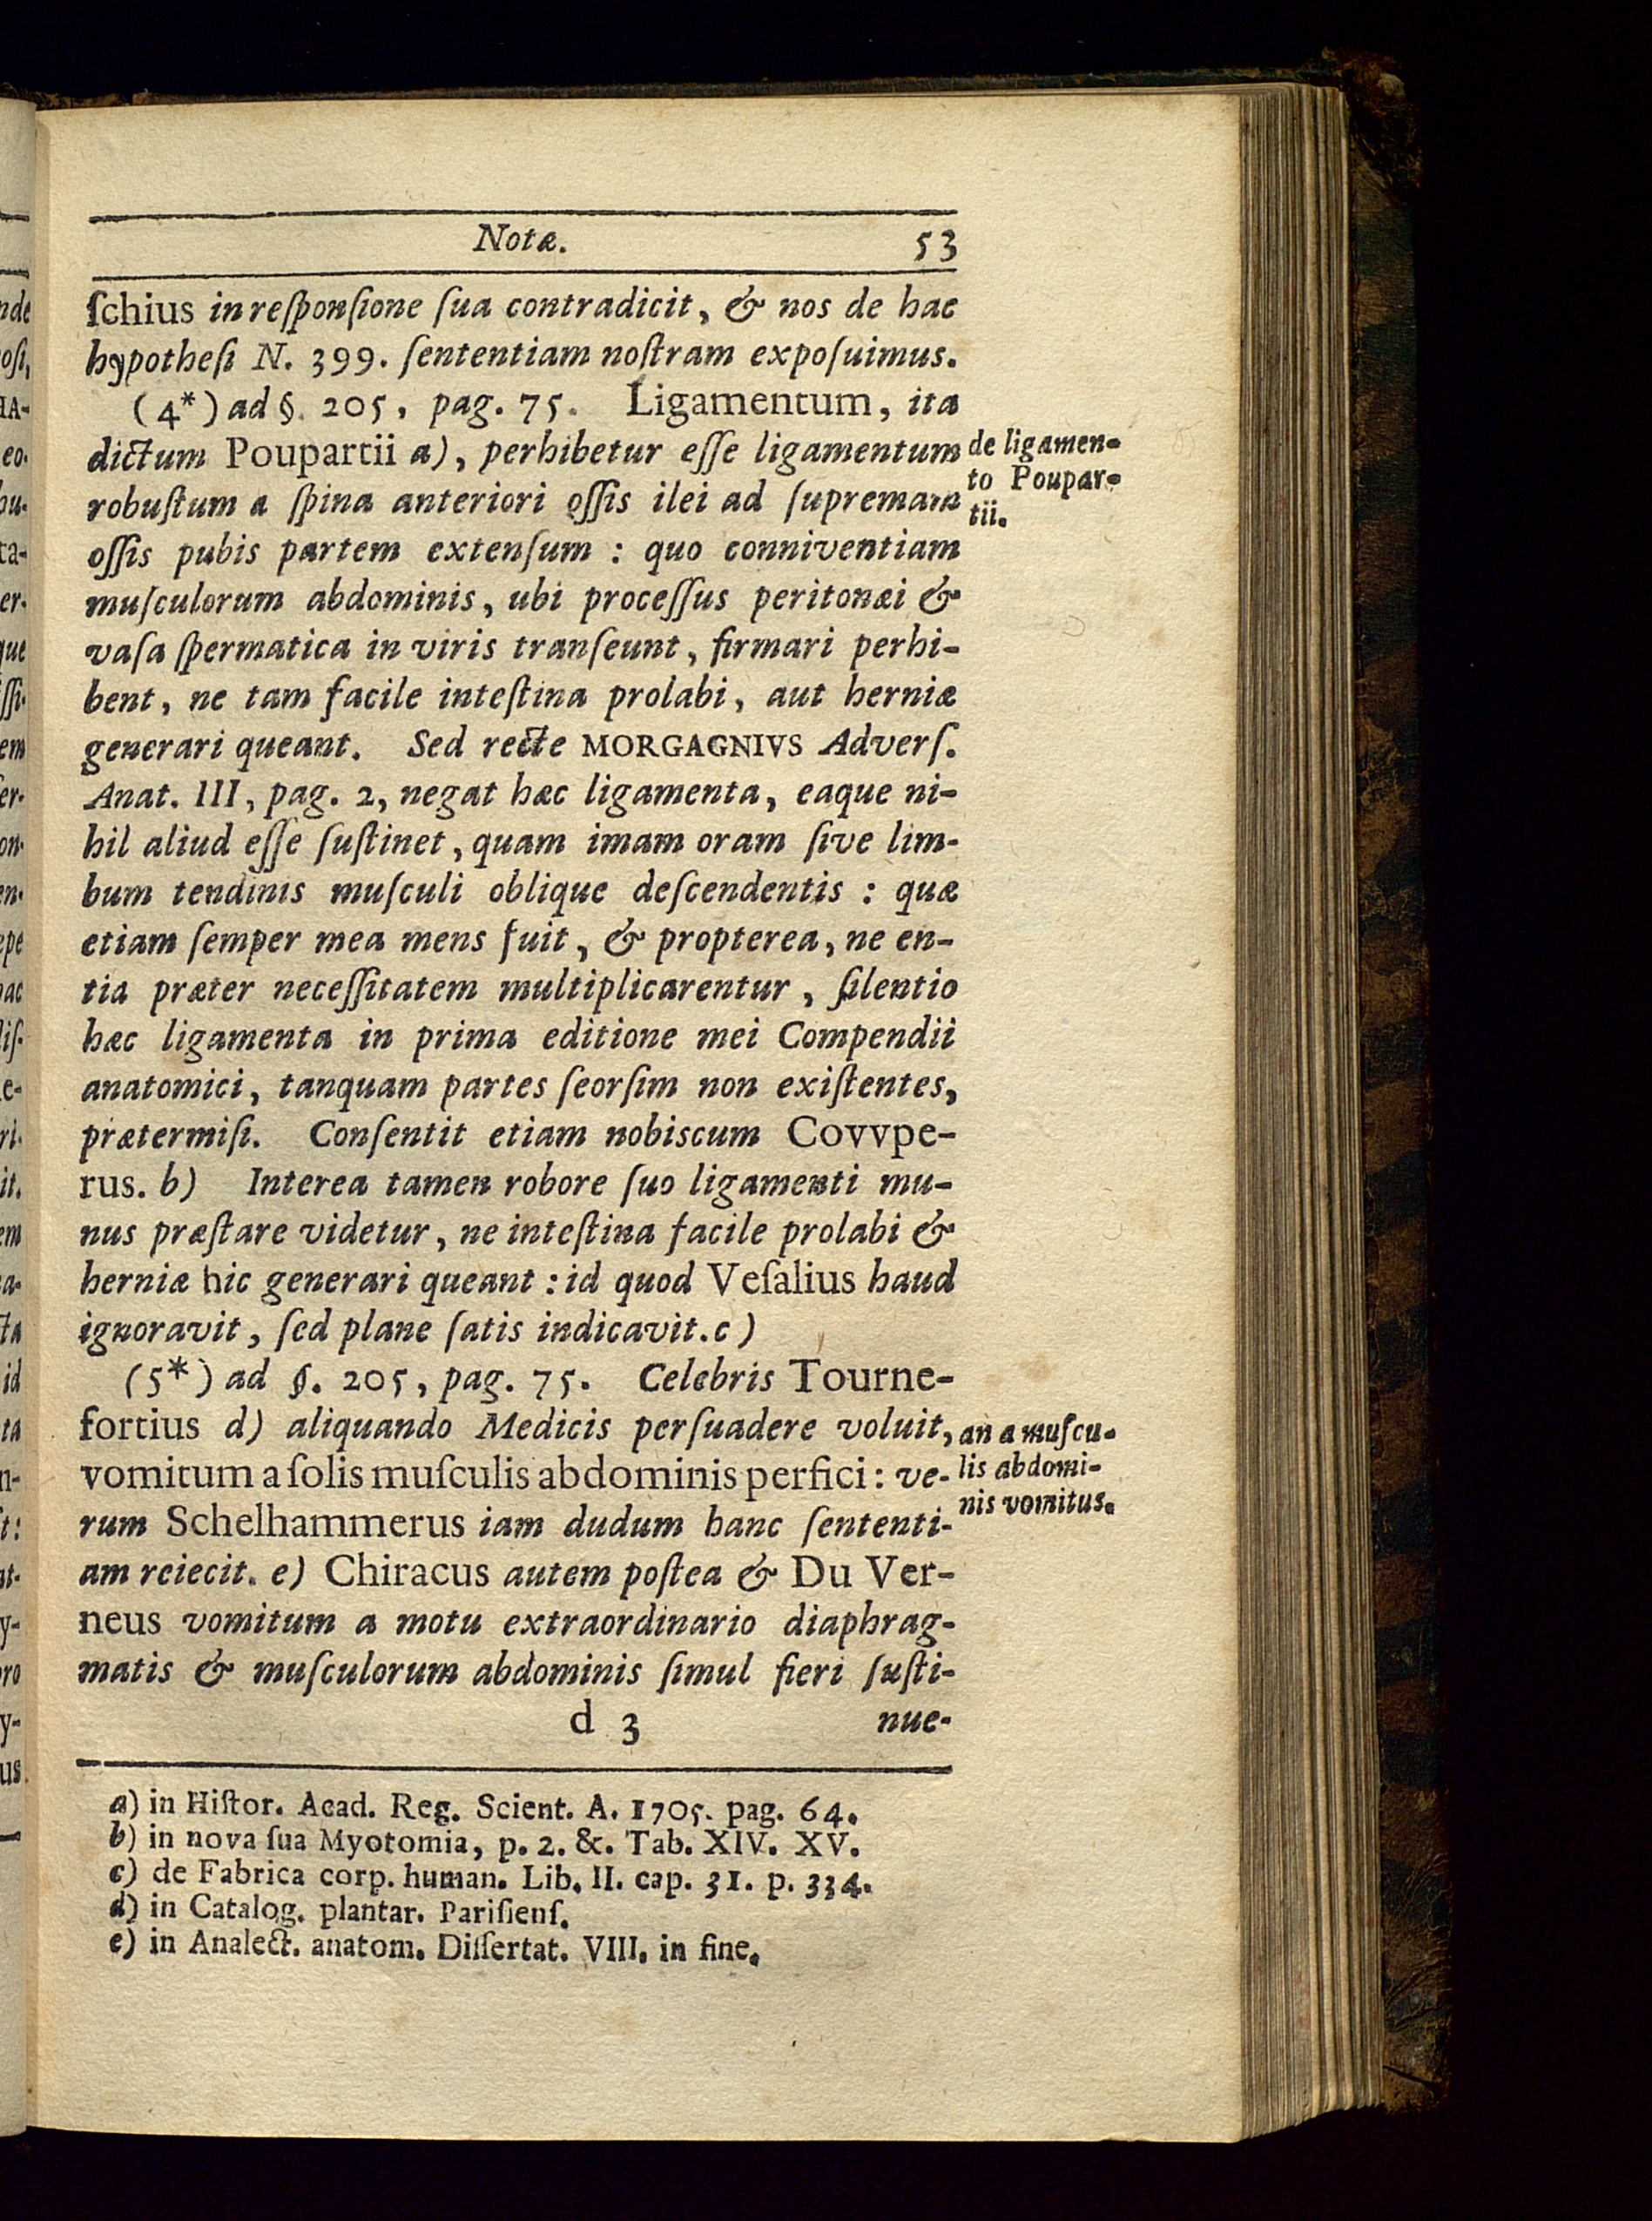 Notæ. 53
ſchius in reſponſione ſua contradicit, & nos de hac
hypotheſi N. 399. ſententiam noſtram expoſuimus.
(4*) ad §. 205, pag. 75. Ligamentum, ita
dictum Poupartii a), perhibetur eſſe ligamentum
de ligamen-
to Poupar-
tii.
robuſtum a ſpina anteriori oſſis ilei ad ſupremam
oſſis pubis partem extenſum : quo conniventiam
muſculorum abdominis, ubi proceſſus peritonæi &
vaſa ſpermatica in viris tranſeunt, firmari perhi-
bent, ne tam facile inteſtina prolabi, aut herniæ
generari queant. Sed recte MORGAGNIVS Adverſ.
Anat. III, pag. 2, negat hæc ligamenta, eaque ni-
hil aliud eſſe ſuſtinet, quam imam oram ſive lim-
bum tendinis muſculi oblique deſcendentis : quæ
etiam ſemper mea mens fuit, & propterea, ne en-
tia præter neceſſitatem multiplicarentur, ſilentio
hæc ligamenta in prima editione mei Compendii
anatomici, tanquam partes ſeorſim non exiſtentes,
prætermiſi. Conſentit etiam nobiscum Covvpe-
rus. b) Interea tamen robore ſuo ligamenti mu-
nus præſtare videtur, ne inteſtina facile prolabi &
herniæ hic generari queant : id quod Veſalius haud
ignoravit, ſed plane ſatis indicavit. c)
(5*) ad §. 205, pag. 75. Celebris Tourne-
fortius d) aliquando Medicis perſuadere voluit,
an a muſcu-
lis abdomi-
nis vomitus.
vomitum a ſolis muſculis abdominis perfici: ve-
rum Schelhammerus iam dudum hanc ſententi-
am reiecit. e) Chiracus autem poſtea & Du Ver-
neus vomitum a motu extraordinario diaphrag-
matis & muſculorum abdominis ſimul fieri ſuſti-
d 3 nue-
a) in Hiſtor. Acad. Reg. Scient. A. 1705. pag. 64.
b) in nova ſua Myotomia, p. 2. &. Tab. XIV. XV.
c) de Fabrica corp. human. Lib. II. cap. 31. p. 334.
d) in Catalog. plantar. Pariſienſ.
e) in Analect. anatom. Diſſertat. VIII. in fine.